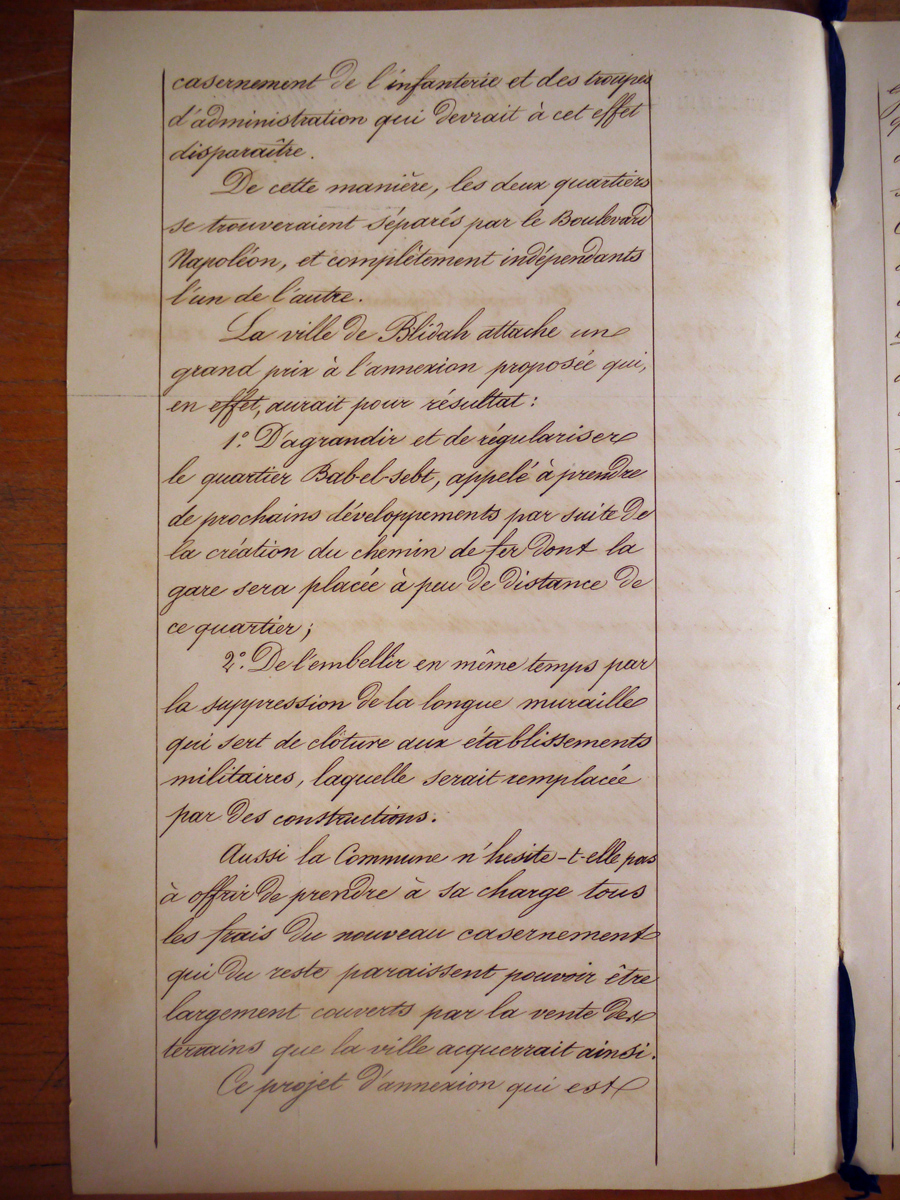 casernement de l'infanterie et des troupes
d'administration qui devrait à cet effet
disparaître.
De cette manière, les deux quartiers
se trouveraient séparés par le Boulevard
Napoléon, et complètement indépendants
l'un de l'autre.
La ville de Blidah attache un
grand prix à l'annexion proposée qui,
en effet, aurait pour résultat :
1° D'agrandir et de régulariser
le quartier Bab-el-sebt, appelé à prendre
de prochains développements par suite de
la création du chemin de fer dont la
gare sera placée à peu de distance de
ce quartier ;
2° De l'embellir en même temps par
la suppression de la longue muraille
qui sert de clôture aux établissements
militaires, laquelle serait remplacée
par des constructions.
Aussi la Commune n'hésite-t-elle pas
à offrir de prendre à sa charge tous
les frais du nouveau casernement
qui du reste paraissent pouvoir être
largement couverts par la vente des
terrains que la ville acquerrait ainsi.
Ce projet d'annexion qui est